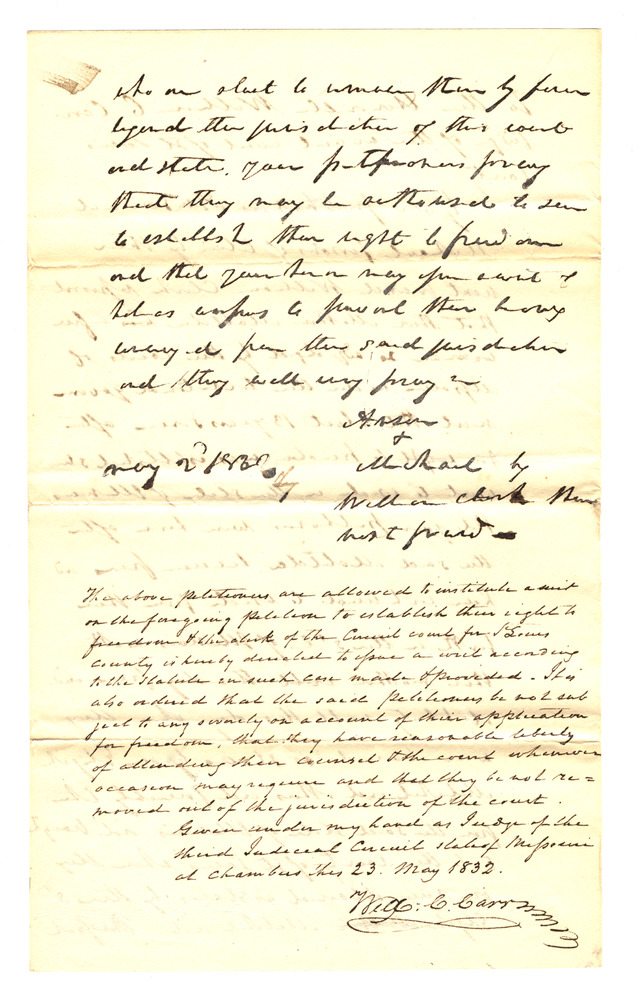 who are about to remove them by force
beyond the jurisdiction of this court
and state. your petitioners pray
that they may be authorised to sue
to establish their right to freedom
and that your honor may issue a writ of
habeas corpus to prevent their being
conveyed from the said jurisdiction
and they will ever pray
Anson
&
Michael by
may 2d 183
William Clark their
next friend
The above petitioners are allowed to institute a suit
on the foregoing petition to establish their right to
freedom & the clerk of the Circuit court for St Louis
county is hereby directed to issue a writ according
to the statute in such case made & provided. It is
also ordered that the said petitioners be not sub
ject to any severity on account of their application
for freedom, that they have reasonable liberty
of attending their counsel & the court whenever
occasion may require and that they be not re=
moved out of the jurisdiction of the court.
Given under my hand as Judge of the
third Judicial Circuit state of Missouri
at Chambers this 23. May 1832.
Wm. C. Carr